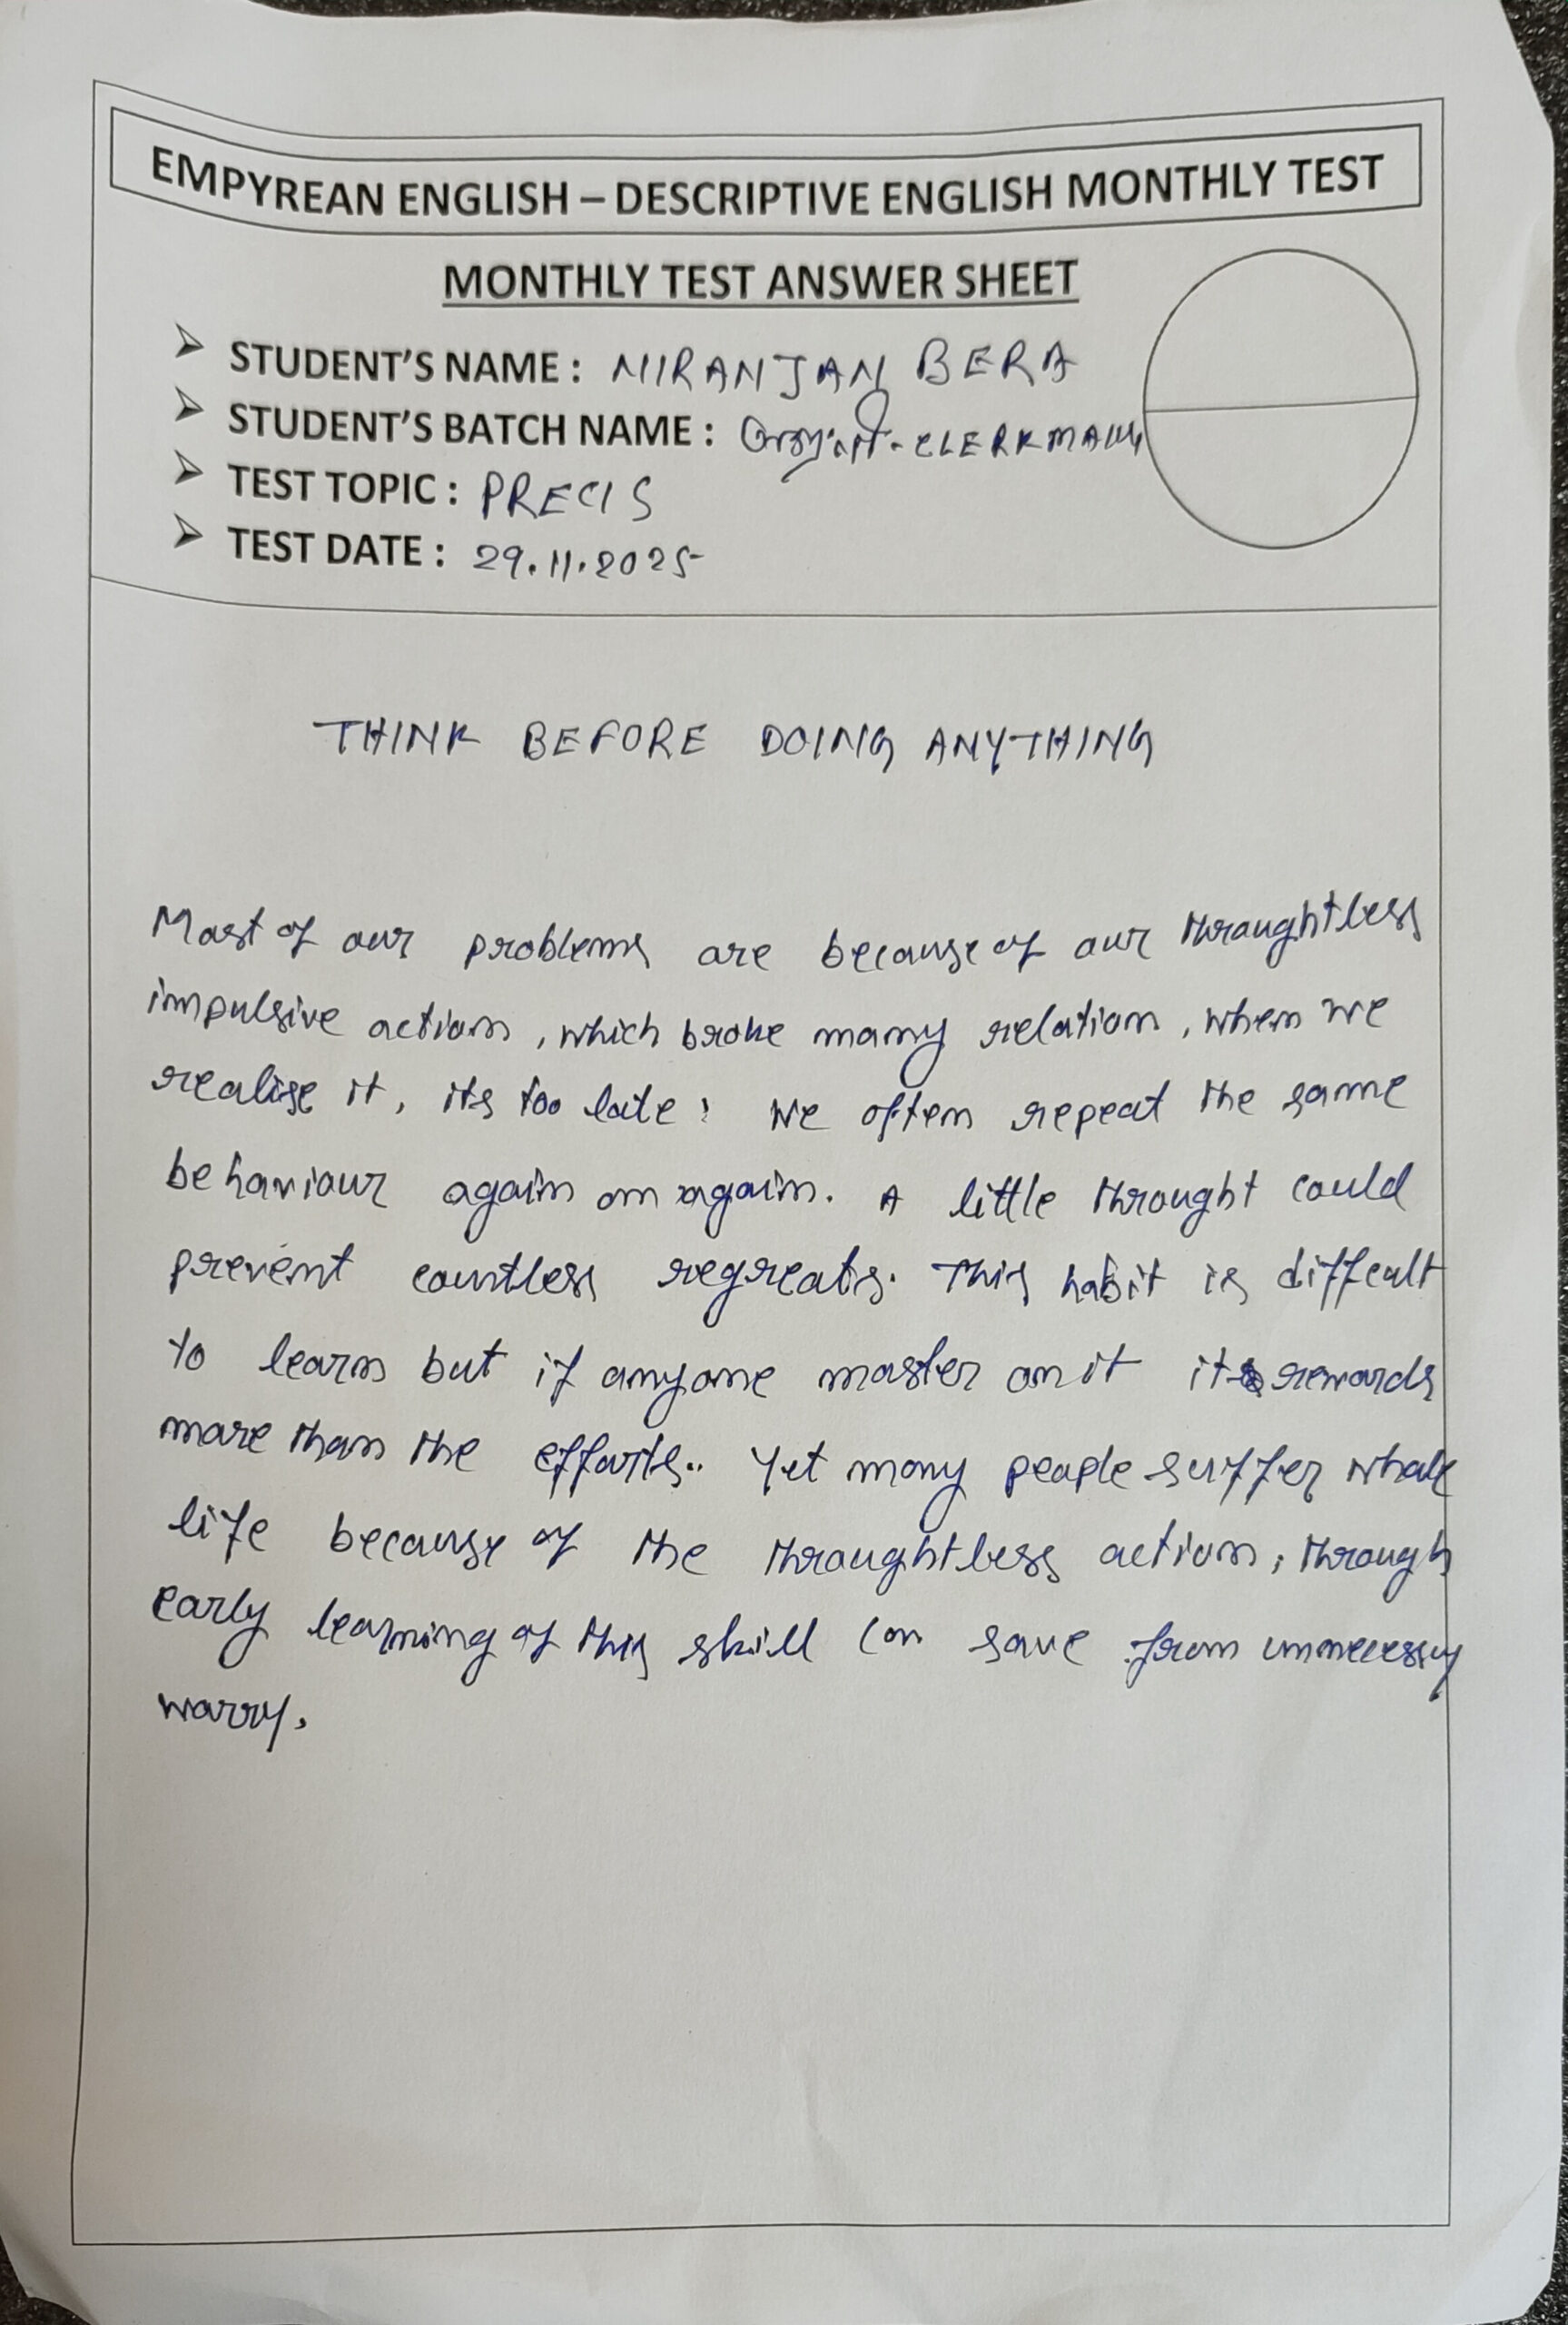 EMPYREAN ENGLISH – DESCRIPTIVE ENGLISH MONTHLY TEST
MONTHLY TEST ANSWER SHEET
➢ STUDENT'S NAME : NIRANJAN BERA
➢ STUDENT'S BATCH NAME :
➢ TEST TOPIC : PRECIS
➢ TEST DATE : 29.11.2025
THINK BEFORE DOING ANYTHING
Most of our problems are because of our throughtless
impulsive actions, which broke many relation, when we
realise it, its too late! We often repeat the same
behaviour again on again. A little throught could
prevent countless regreats. This habit is diffcult
to learn but if anyone master on it it rewards
more than the efforts.. Yet many people suffer whole
life because of the throughtless action, through
early learning of this skill can save from
worry.